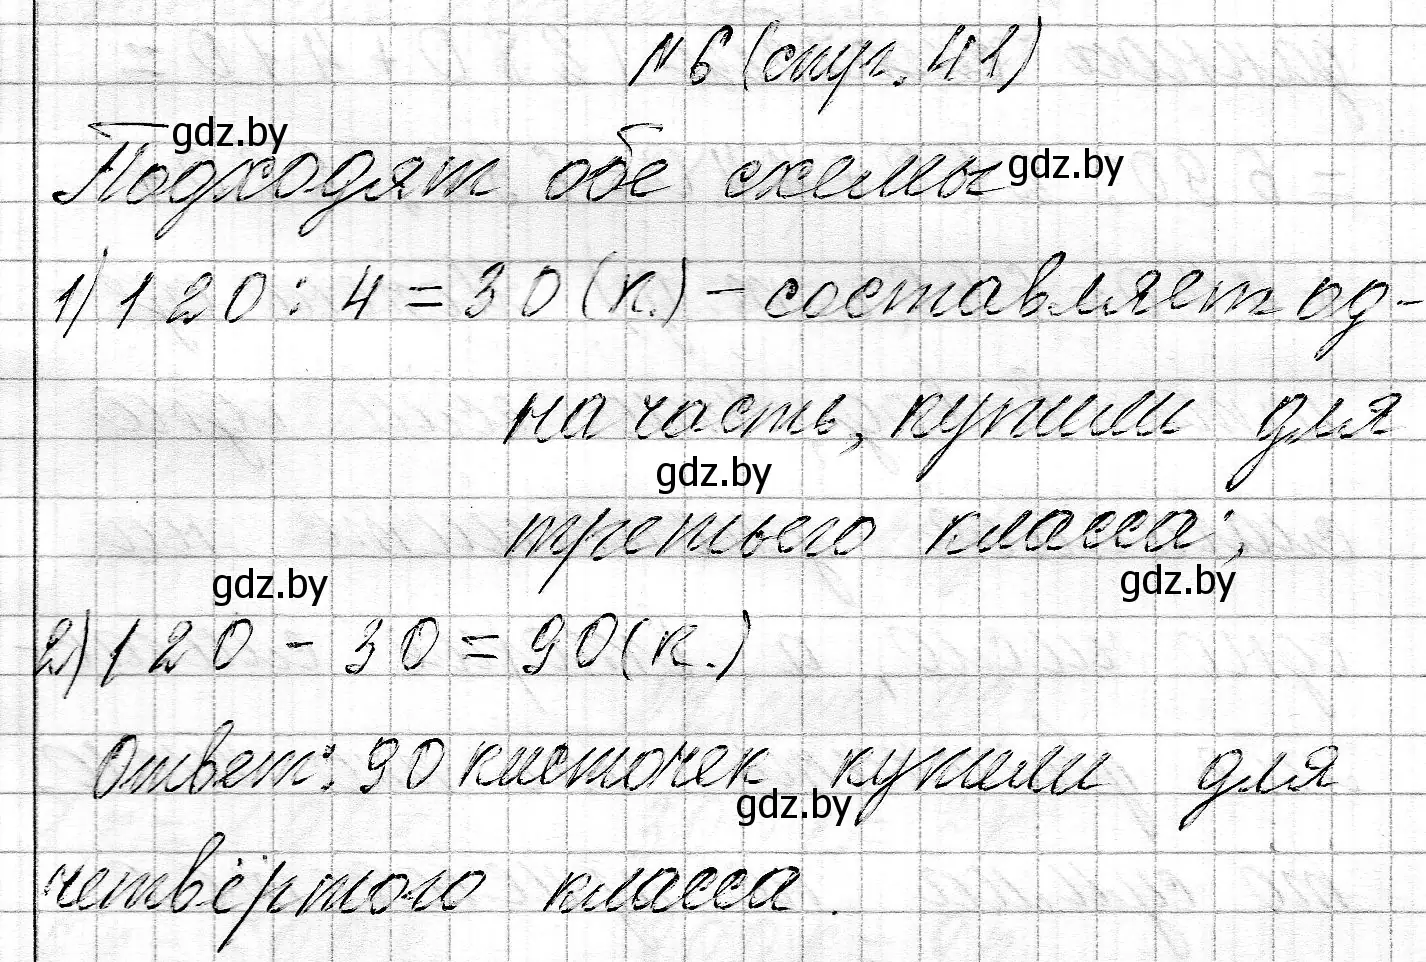 №6 (стр. 41)
gdz.by
Подходят обе схемы
gdz.by
1) 120 : 4 = 30 (к.) – составляет од-
на часть, купили для
gdz.by
третьего класса;
gdz.by
gdz.by
2) 120 - 30 = 90 (к.)
Ответ: 90 кисточек купили для
gdz.by
четвёртого класса.